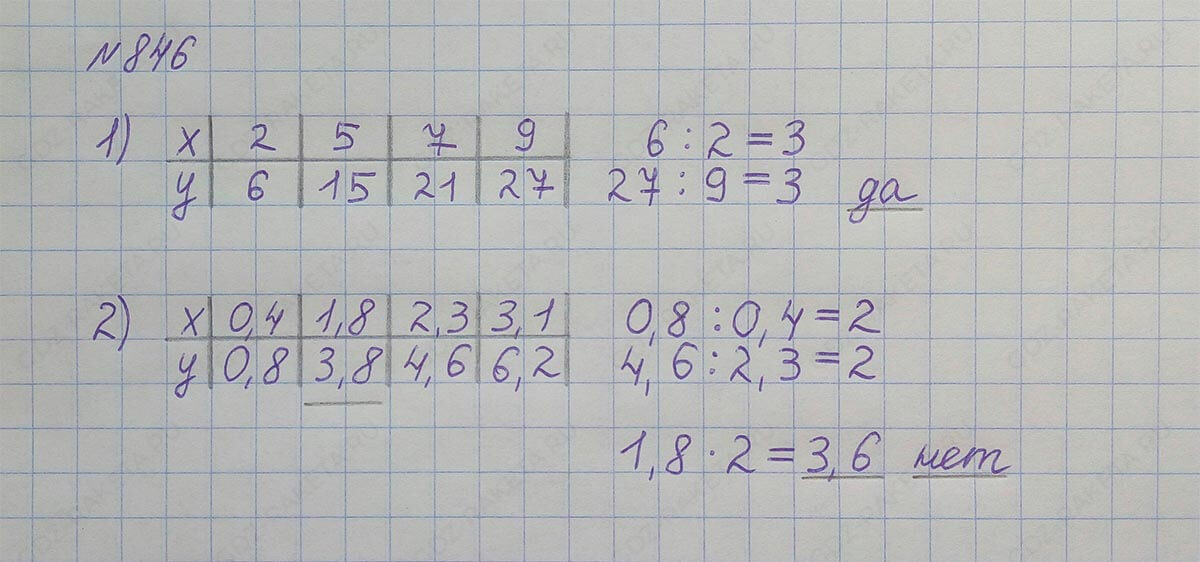 №846
1) x 2 5 7 9 6 : 2 = 3
y 6 15 21 27 27 : 9 = 3 да
2) x 0,4 1,8 2,3 3,1 0,8 : 0,4 = 2
y 0,8 3,8 4,6 6,2 4,6 : 2,3 = 2
1,8 · 2 = 3,6 нет